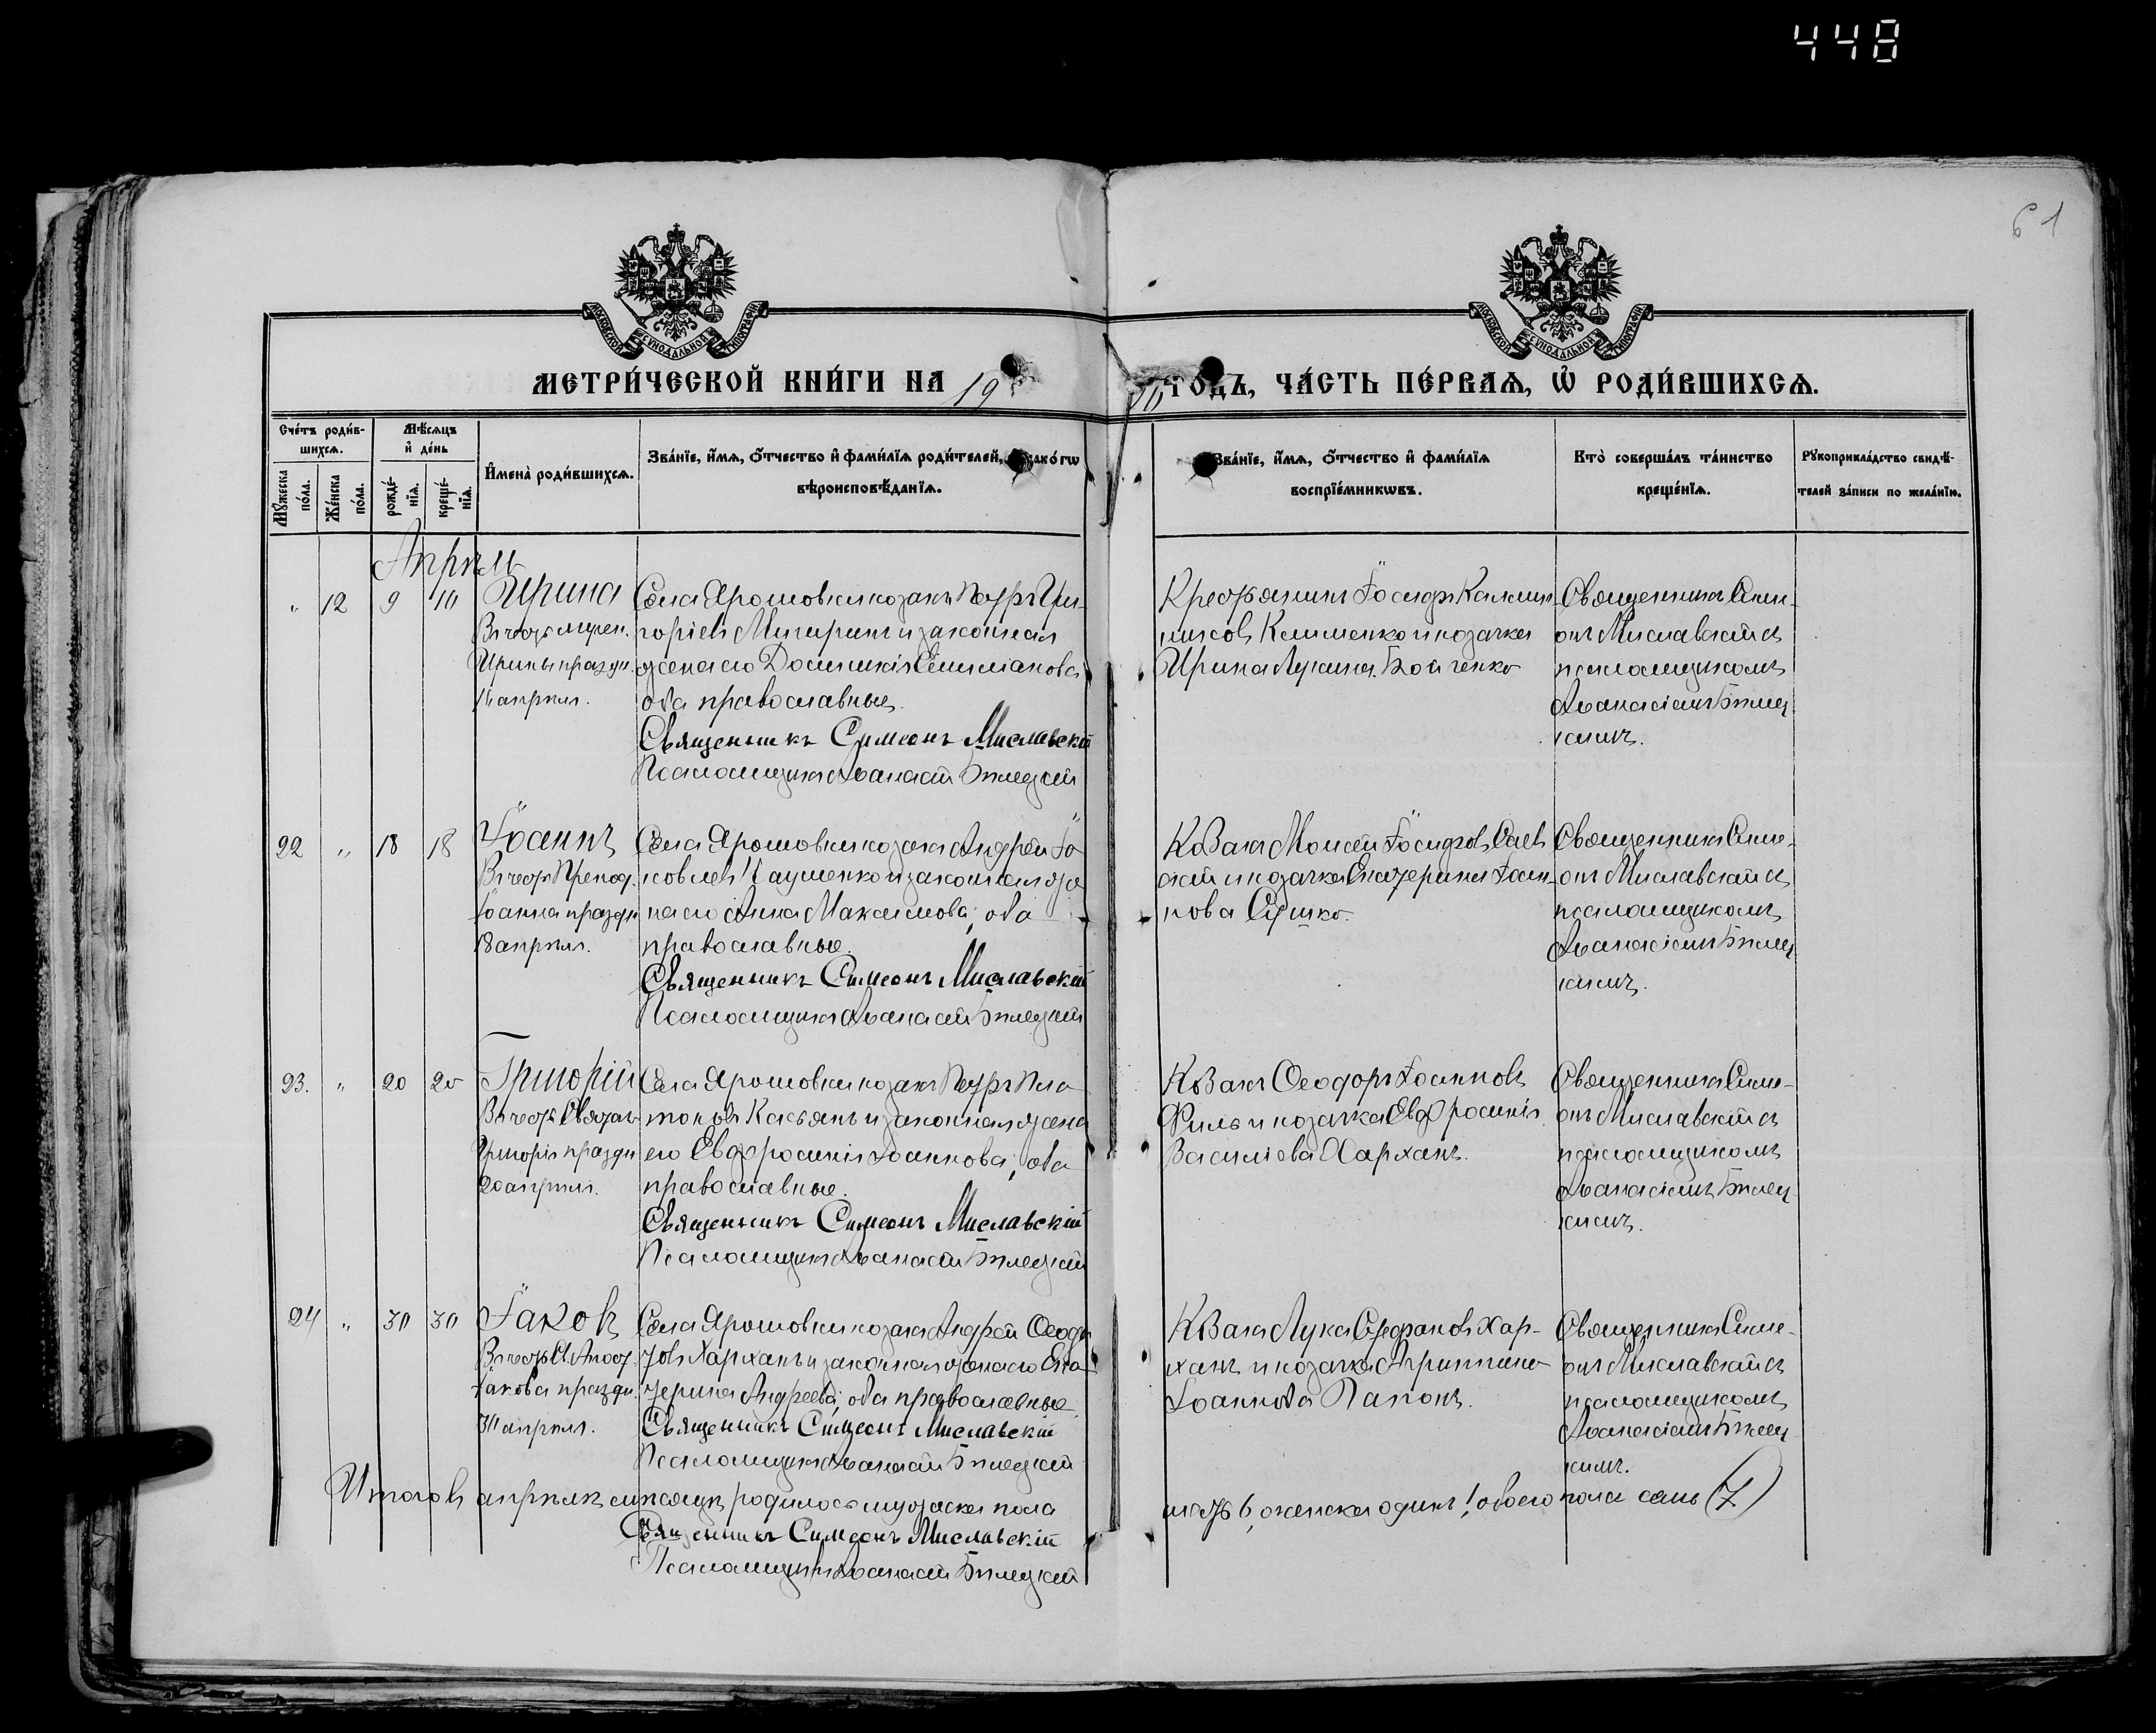 448
61
МОСКОВСКОЙ СѴНОДАЛЬНОЙ ТИПОГРАФІИ
МОСКОВСКОЙ СѴНОДАЛЬНОЙ ТИПОГРАФІИ
МЕТРИ́ЧЕСКОЙ КНИ́ГИ НА 19
ГОДЪ, ЧА́СТЬ ПЕ́РВАѦ, Ѡ҆ РОДИ́ВШИХСѦ.
Сче́тъ роди́в-
шихсѧ.
Мꙋ́жеска по́ла.
Же́нска по́ла.
Мѣ́сѧцъ
и҆ де́нь
рожде́-нїѧ.
креще́-нїѧ.
И҆мена̀ роди́вшихсѧ.
Зва́нїе, и҆́мѧ, ѻ҆́тчество и҆ фами́лїѧ роди́телей, како́гѡ
вѣроисповѣ́данїѧ.
Зва́нїе, и҆́мѧ, ѻ҆́тчество и҆ фами́лїѧ
воспрїе́мникѡвъ.
Кто̀ соверша́лъ та́инство
креще́нїѧ.
Рꙋкоприкла́дство свидѣ́-
телей за́писи по жела́нїю.
Апрѣль
" 12 9 10 Ирина
Въ честь мучен.
Ирины праздн.
16 апрѣля.
Села Ярошовки козакъ Петръ Гри-
горіевъ и законная
жена его Домникія
оба православные.
Священникъ Симеонъ Миславскій
Псаломщикъ Аѳанасій Билецкій
Іосифъ
Клименко и козачка
Ирина Лукина Бойченко
Священникъ Симе-
онъ Миславскій съ
псаломщикомъ
Аѳанасіемъ Билец-
кимъ.
22 " 18 18 Іоаннъ
Въ честь Препод.
Іоанна праздн.
18 апрѣля.
Села Ярошовки козакъ Андрей Іа-
ковлевъ Науменко и законная же-
на его Анна Максимова, оба
православные.
Священникъ Симеонъ Миславскій
Псаломщикъ Аѳанасій Билецкій
Козакъ Моисей Іосифовъ
и козачка Екатерина Іоан-
нова Сушко.
Священникъ Симе-
онъ Миславскій съ
псаломщикомъ
Аѳанасіемъ Билец-
кимъ.
23. " 20 20 Григорій
Въ честь Святаго
Григорія праздн.
20 апрѣля.
Села Ярошовки козакъ Петръ Пла-
тоновъ Касьянъ и законная жена
его Евфросинія Іоаннова, оба
православные.
Священникъ Симеонъ Миславскій
Псаломщикъ Аѳанасій Билецкій
Козакъ Ѳеодоръ Іоанновъ
Филь и козачка Евфросинія
Василіева Харханъ.
Священникъ Симе-
онъ Миславскій съ
псаломщикомъ
Аѳанасіемъ Билец-
кимъ.
24 " 30 30 Іаковъ
Въ честь Св. Апост.
Іакова праздн.
30 апрѣля.
Села Ярошовки козакъ Андрей Ѳеодо-
товъ Харханъ и законная жена его Ека-
терина Андреева, оба православные.
Священникъ Симеонъ Миславскій
Псаломщикъ Аѳанасій Билецкій
Козакъ Лука Стефановъ Хар-
ханъ и козачка Агриппина
Іоаннова Папонъ.
Священникъ Симе-
онъ Миславскій съ
псаломщикомъ
Аѳанасіемъ Билец-
кимъ.
Итого въ апрѣлѣ мѣсяцѣ родилось мужеска пола
шесть 6, женска одинъ 1, обоего пола семь (7)
Священникъ Симеонъ Миславскій
Псаломщикъ Аѳанасій Билецкій